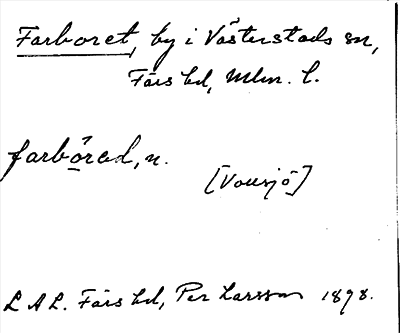 Farboret, by i Västerstads sn,
Färs hd, Mlm. l.
farbōred, n.
[Vousjö]
L A L. Färs hd, Per Larsson 1898.